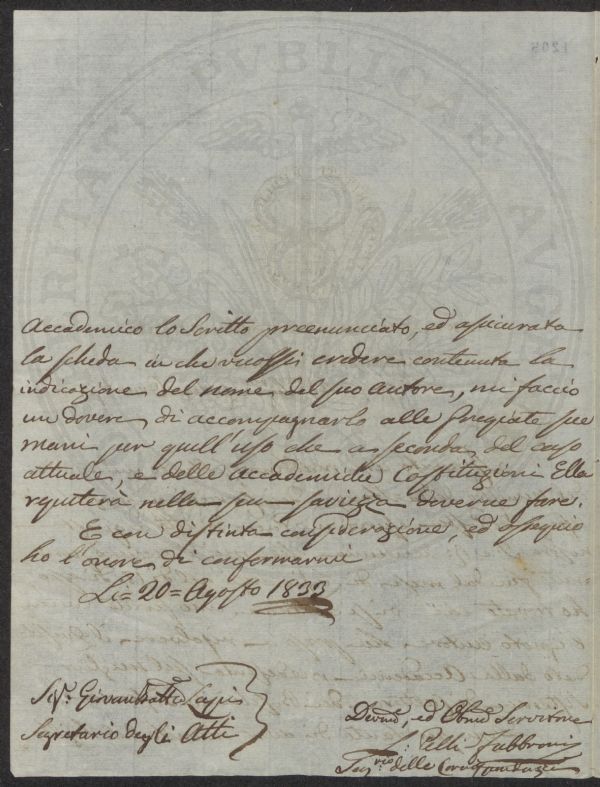 1205
PROSPERITATI PUBLICAE AUGENDAE
Accademico lo Scritto preenunciato, ed assicurata
la scheda in che vuolsi credere contenuta la
indicazione del nome del suo autore, mi faccio
un dovere di accompagnarlo alle pregiate sue
mani per quell'uso che a seconda del caso
attuale, e delle Accademiche Costituzioni Ella
reputerà nella sua saviezza doverne fare.
E con distinta considerazione, ed ossequio
ho l'onore di confermarmi
Li = 20 = Agosto 1833
Sigr. Giovanbatta Lapi
Segretario degli Atti
Devmo, ed Obmo Servitore
Pelli Fabbroni
Segrio delle Corrispondenze